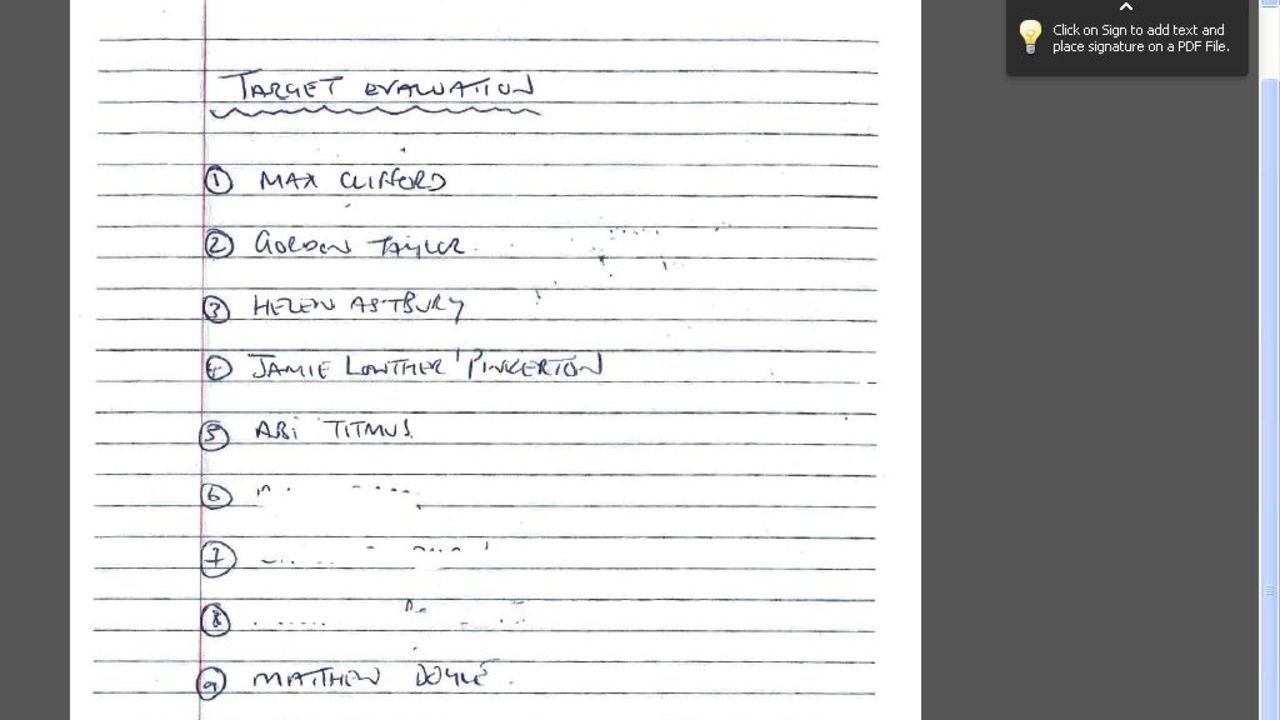 TARGET EVALUATION
① MAX CLIFFORD
② GORDON TAYLOR
③ HELEN ASTBURY
④ JAMIE LOWTHER'PINKERTON
⑤ ABI TITMUS
⑥
⑦
⑧
⑨ MATTHEW DOYLE
Click on Sign to add text and
place signature on a PDF File.